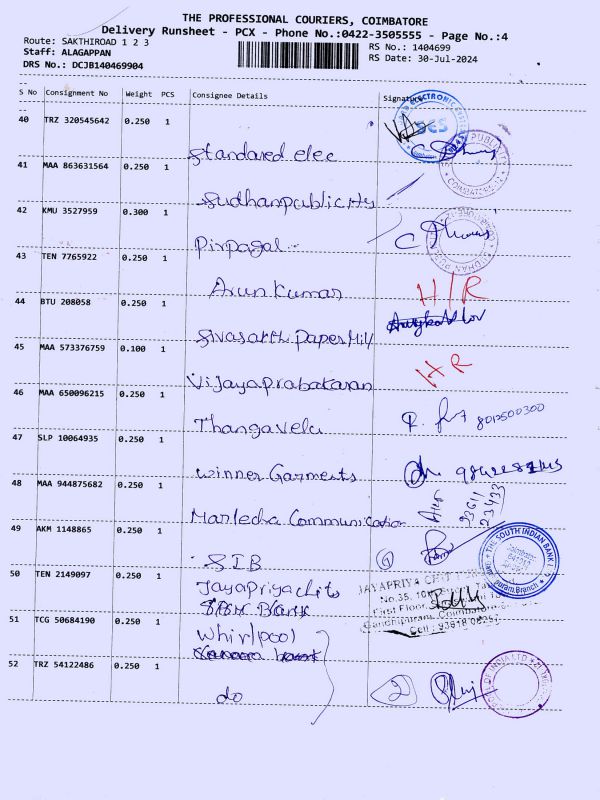 THE PROFESSIONAL COURIERS, COIMBATORE
Delivery Runsheet - PCX - Phone No.:0422-3505555 - Page No.:4
Route: SAKTHIROAD 1 2 3
RS No.: 1404699
Staff: ALAGAPPAN
RS Date: 30-Jul-2024
DRS No.: DCJB140469904
S No Consignment No Weight PCS Consignee Details Signature
40 TRZ 320545642 0.250 1
Standared elec
41 MAA 863631564 0.250 1
Sudhanpublicity
42 KMU 3527959 0.300 1
Pixpagal
43 TEN 7765922 0.250 1
Arun kumar H/R
44 BTU 208058 0.250 1
Sivasakthi paper Mill
45 MAA 573376759 0.100 1
Vijayaprabakaran HR
46 MAA 650096215 0.250 1
Thangavelu 8012500300
47 SLP 10064935 0.250 1
Winner Garments
48 MAA 944875682 0.250 1
93611
23433
Marlecha Communication
49 AKM 1148865 0.250 1
THE SOUTH INDIAN BANK
S.I.B
50 TEN 2149097 0.250 1
Jayapriyachits
JAYAPRIYA CHIT
No.35, 10
First Floor
Gandhipuram, Coimbatore
51 TCG 50684190 0.250 1
Whirlpool
52 TRZ 54122486 0.250 1
do 2